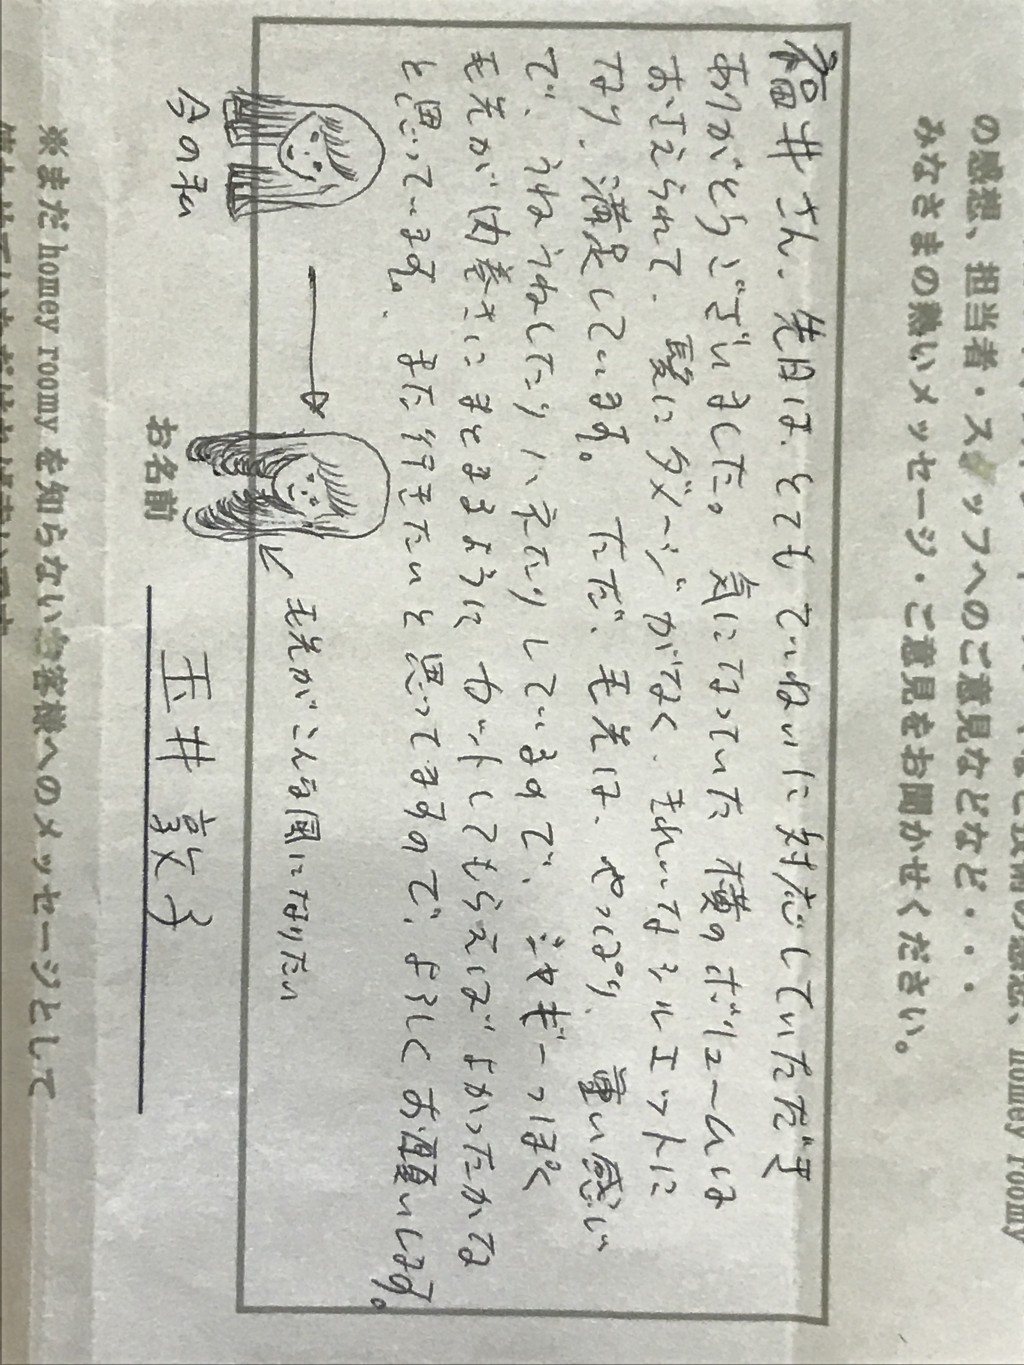 の感想、担当者・スタッフへのご意見などなど・・・
みなさまの熱いメッセージ・ご意見をお聞かせください。
福井さん、先日は、とても ていねいに対応していただき
ありがとうございました。気になっていた 横のボリュームは
おさえられて、髪にダメージがなく、きれいなシルエットに
なり、満足しています。ただ、毛先は、やっぱり、重い感じ
で、うねうねしたりハネたりしていますので、シャギーっぽく
毛先が内巻きにまとまるように カットしてもらえばよかったかな
と思っています。また行きたいと思ってますので、よろしくお願いします。
今の私
毛先がこんな風になりたい
お名前 玉井 敦子
※まだ homey roomy を知らないお客様へのメッセージとして